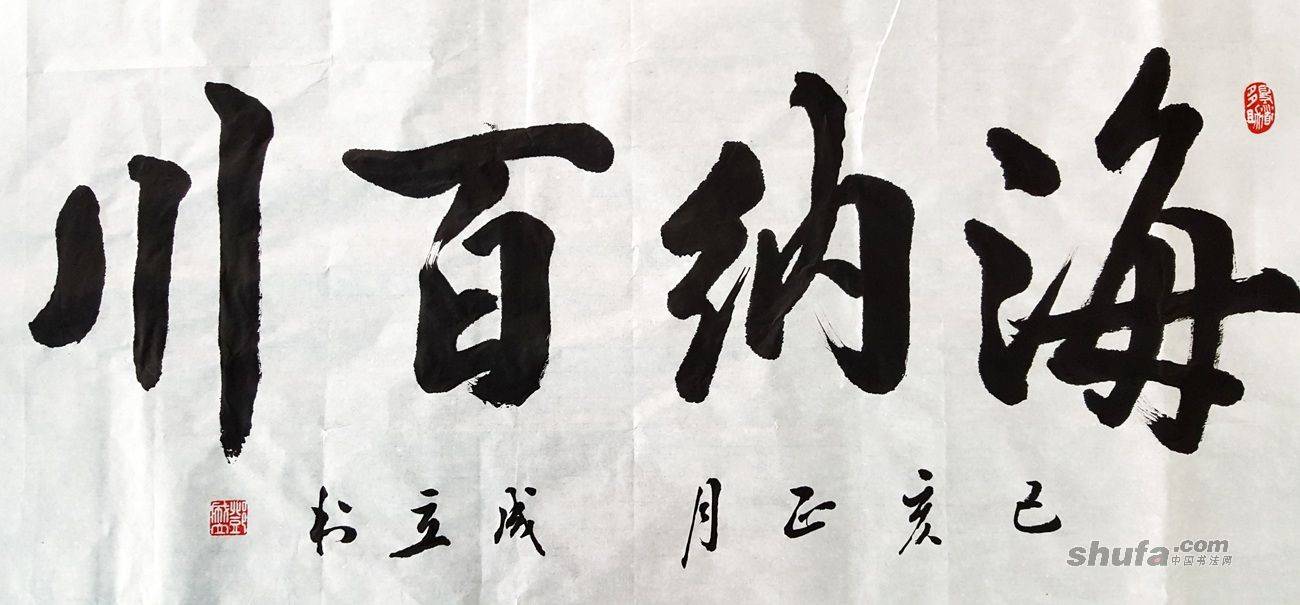 海纳百川
己亥正月 成立书
得道多助
shufa.com
中国书法网